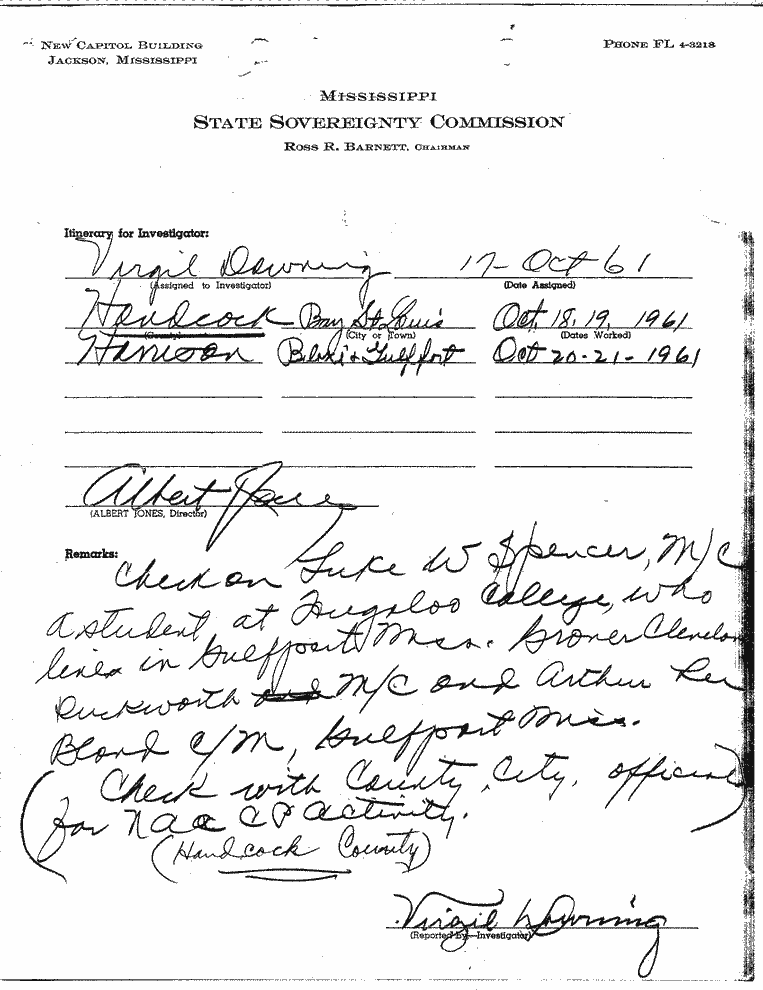 NEW CAPITOL BUILDING PHONE FL 4-3218
JACKSON, MISSISSIPPI
MISSISSIPPI
STATE SOVEREIGNTY COMMISSION
ROSS R. BARNETT, CHAIRMAN
Itinerary for Investigator:
Virgil Downing 17-Oct 61
(Assigned to Investigator) (Date Assigned)
Handcock Bay St Louis Oct, 18, 19, 1961
(County) (City or Town) (Dates Worked)
Harrison Biloxi & Gulfport Oct 20-21-1961
Albert Jones
(ALBERT JONES, Director)
Remarks:
Check on Luke W Spencer, M/C
a student at Tugaloo College, who
lives in Gulfport Miss. Grover Cleveland
Ruckworth M/C and Arthur Lee
Bland C/M, Gulfport Miss.
(Check with County, City, official
for NAACP activity.)
(Handcock County)
Virgil Downing
(Reported by—Investigator)